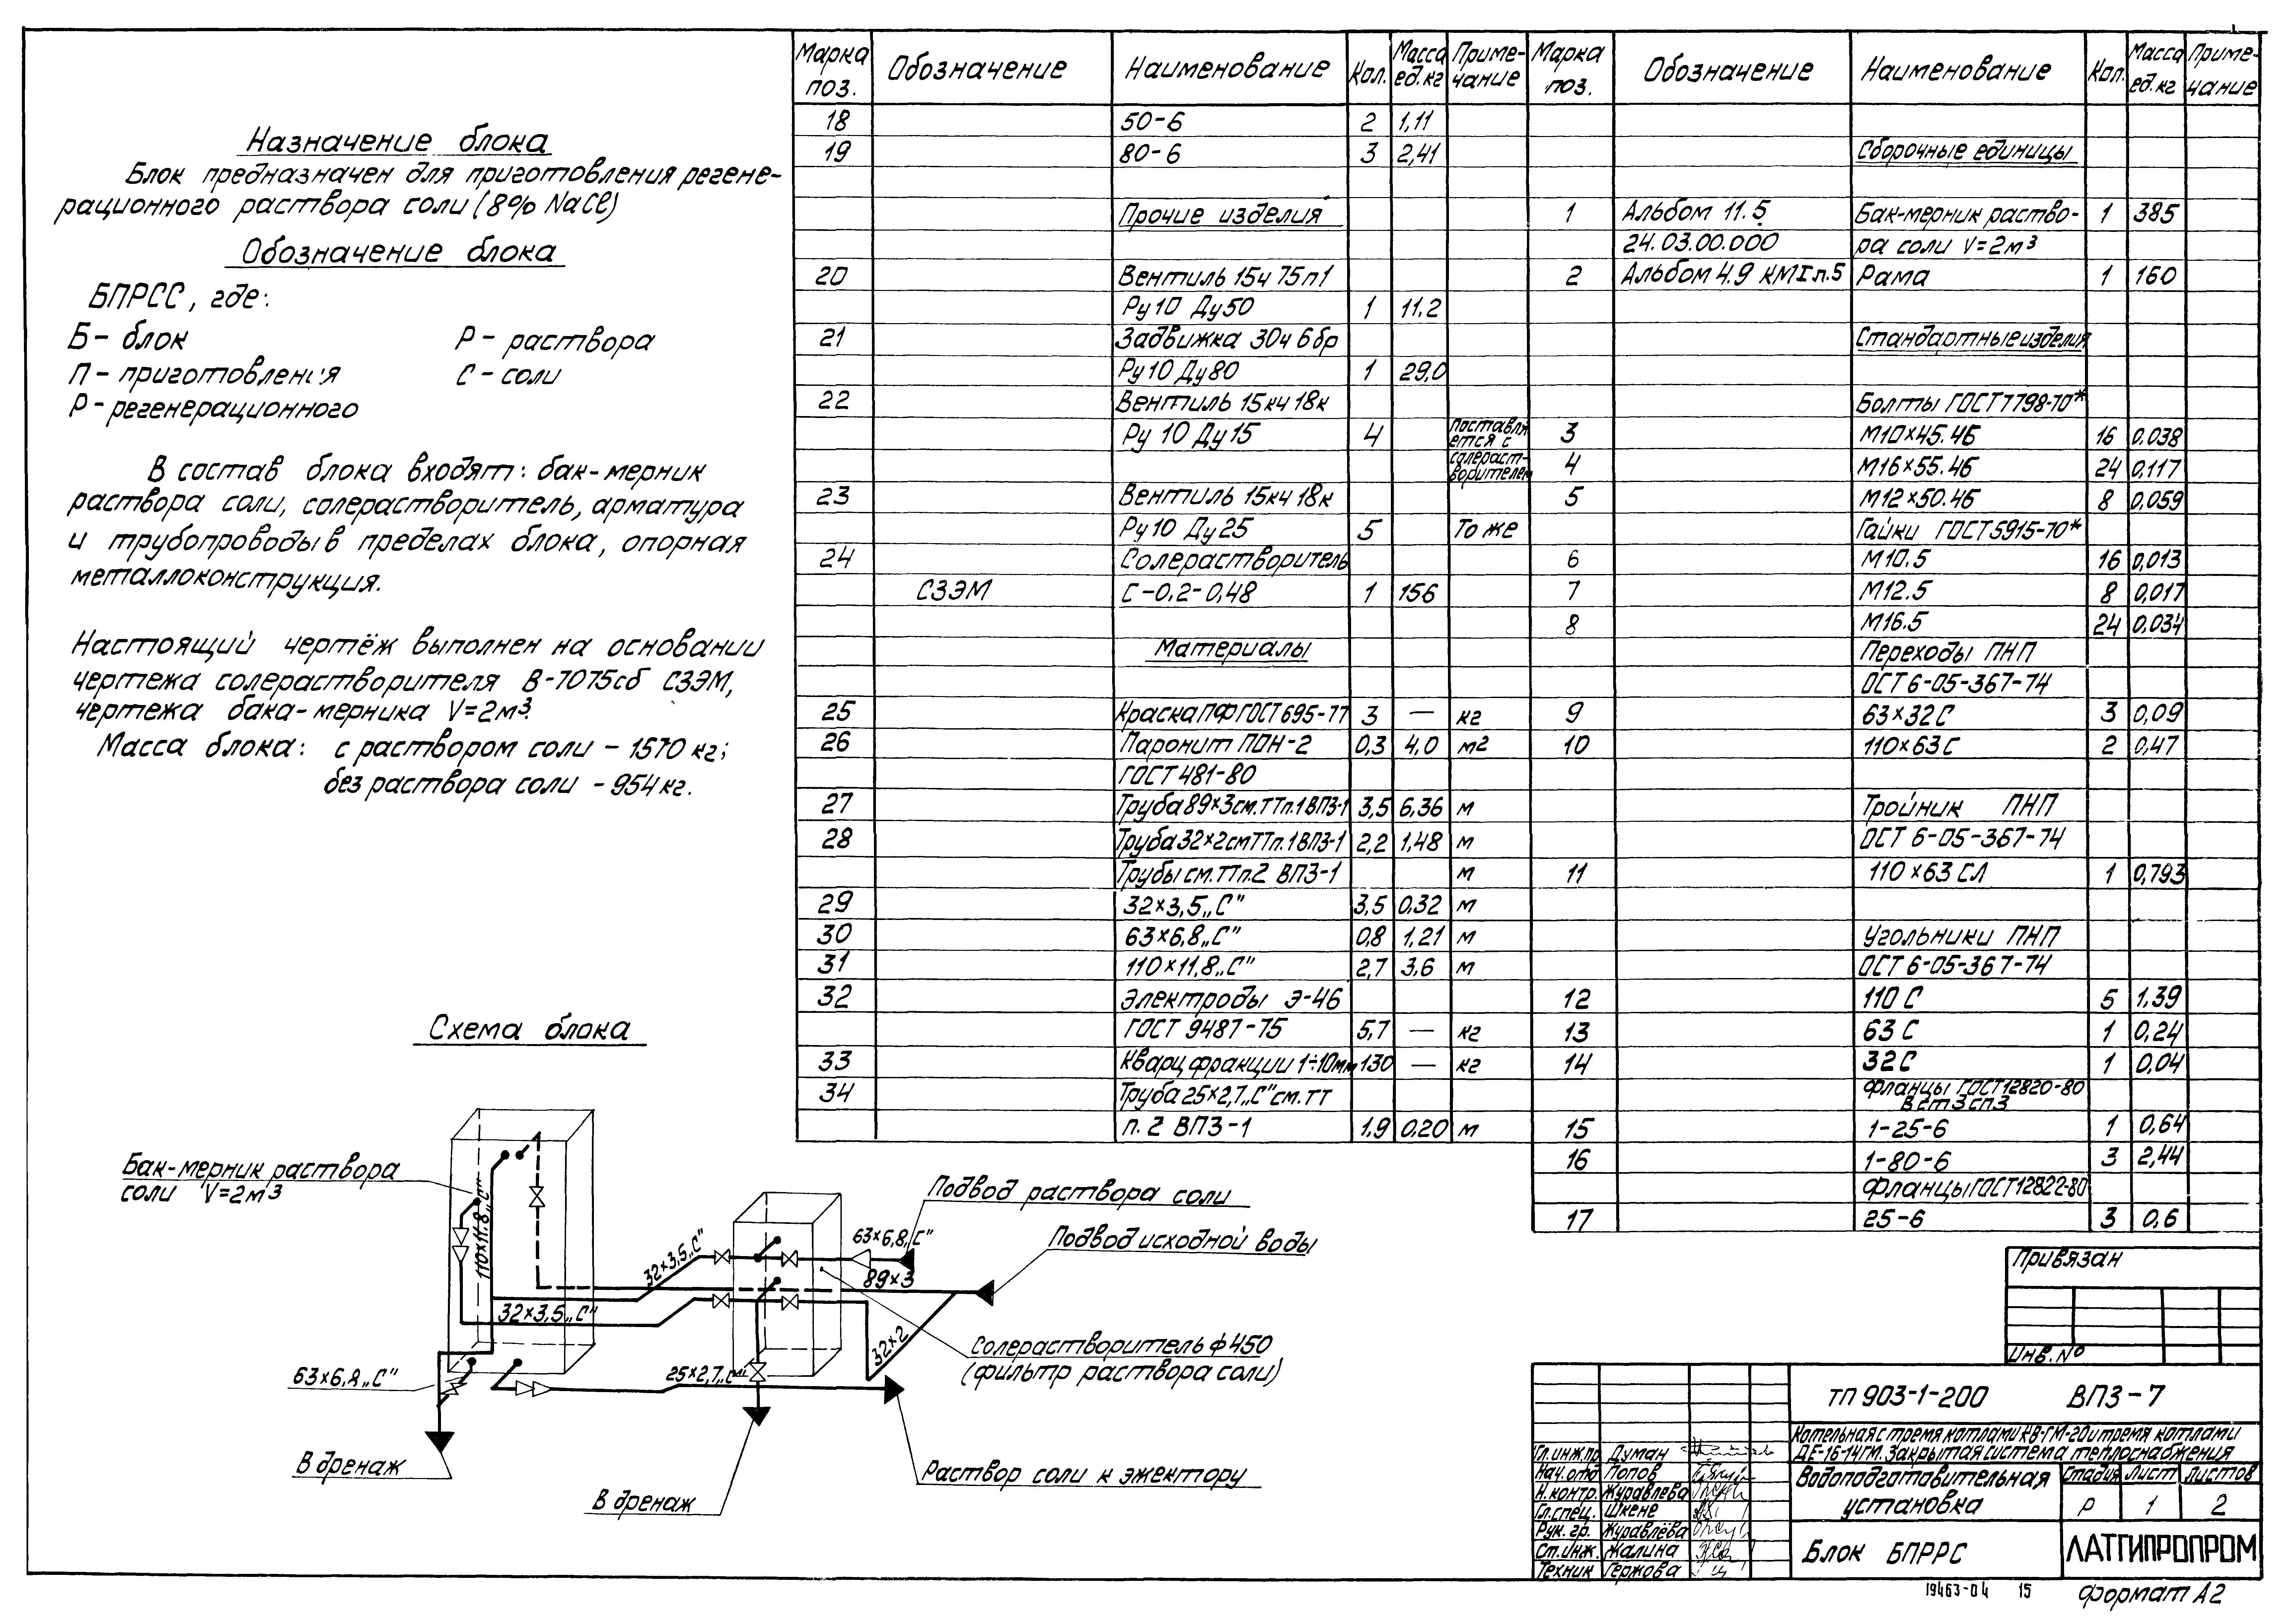 Назначение блока
Блок предназначен для приготовления регене-
рационного раствора соли (8% NaCl)
Обозначение блока
БПРСС, где:
Б - блок
Р - раствора
П - приготовления
С - соли
Р - регенерационного
В состав блока входят: бак-мерник
раствора соли, солерастворитель, арматура
и трубопроводы в пределах блока, опорная
металлоконструкция.
Настоящий чертёж выполнен на основании
чертежа солерастворителя В-7075сб СЗЭМ,
чертежа бака-мерника V=2м³.
Масса блока: с раствором соли - 1570 кг;
без раствора соли - 954 кг.
Схема блока
Бак-мерник раствора
соли V=2м³
110×11.8„С"
32×3,5„С"
32×3,5„С"
63×6,8„С"
63×6,8„С"
89×3
32×2
25×2,7„С"
Подвод раствора соли
Подвод исходной воды
Солерастворитель ф450
(фильтр раствора соли)
Раствор соли к эжектору
В дренаж
В дренаж
Марка поз. Обозначение Наименование Кол. Масса ед.кг Приме-чание
18 50-6 2 1,11
19 80-6 3 2,41
Прочие изделия
20 Вентиль 15ч 75п1
Ру10 Ду50 1 11.2
21 Задвижка 30ч 6бр
Ру10 Ду80 1 29,0
22 Вентиль 15кч 18к
Ру 10 Ду15 4 Поставля
ется с
солераст-
ворителем
23 Вентиль 15кч 18к
Ру10 Ду25 5 То же
24 Солерастворитель
СЗЭМ С-0,2-0,48 1 156
Материалы
25 Краска ПФ ГОСТ 695-77 3 — кг
26 Паронит ПОН-2 0,3 4,0 м²
ГОСТ 481-80
27 Труба 89×3см.ТТп.1 ВПЗ-1 3,5 6,36 м
28 Труба 32×2смТТп.1 ВПЗ-1 2,2 1,48 м
Трубы см.ТТп.2 ВПЗ-1 м
29 32×3,5„С" 3,5 0,32 м
30 63×6,8„С" 0,8 1,21 м
31 110×11,8„С" 2,7 3,6 м
32 Электроды Э-46
ГОСТ 9487-75 5,7 — кг
33 Кварц фракции 1÷10мм 130 — кг
34 Труба 25×2,7„С" см.ТТ
п.2 ВПЗ-1 1,9 0.20 м
Марка поз. Обозначение Наименование Кол. Масса ед.кг Приме-чание
Сборочные единицы
1 Альбом 11.5 Бак-мерник раство- 1 385
24.03.00.000 ра соли V=2м³
2 Альбом 4.9 КМI л.5 Рама 1 160
Стандартные изделия
Болты ГОСТ 7798-70*
3 М10×45.46 16 0.038
4 М16×55.46 24 0,117
5 М12×50.46 8 0,059
Гайки ГОСТ 5915-70*
6 М10.5 16 0,013
7 М12.5 8 0,017
8 М16.5 24 0,034
Переходы ПНП
ОСТ 6-05-367-74
9 63×32С 3 0,09
10 110×63С 2 0,47
Тройник ПНП
ОСТ 6-05-367-74
11 110×63 СЛ 1 0,793
Угольники ПНП
ОСТ 6-05-367-74
12 110 С 5 1,39
13 63 С 1 0,24
14 32С 1 0,04
Фланцы ГОСТ 12820-80
В ст3сп3
15 1-25-6 1 0,64
16 1-80-6 3 2,44
Фланцы ГОСТ 12822-80
17 25-6 3 0,6
Привязан
Инв.№
тп 903-1-200 ВПЗ-7
Котельная с тремя котлами КВ-ГМ-20 и тремя котлами
ДЕ-16-14ГМ. Закрытая система теплоснабжения
Гл.инж.пр Думан
Нач.отд Попов
Н.контр. Журавлева
Гл.спец. Шкене
Рук. гр. Журавлёва
Ст.инж. Жалина
Техник Гержова
Водоподготовительная
установка
Стадия Лист Листов
Р 1 2
Блок БПРРС
ЛАТГИПРОПРОМ
19463-04 15
Формат А2